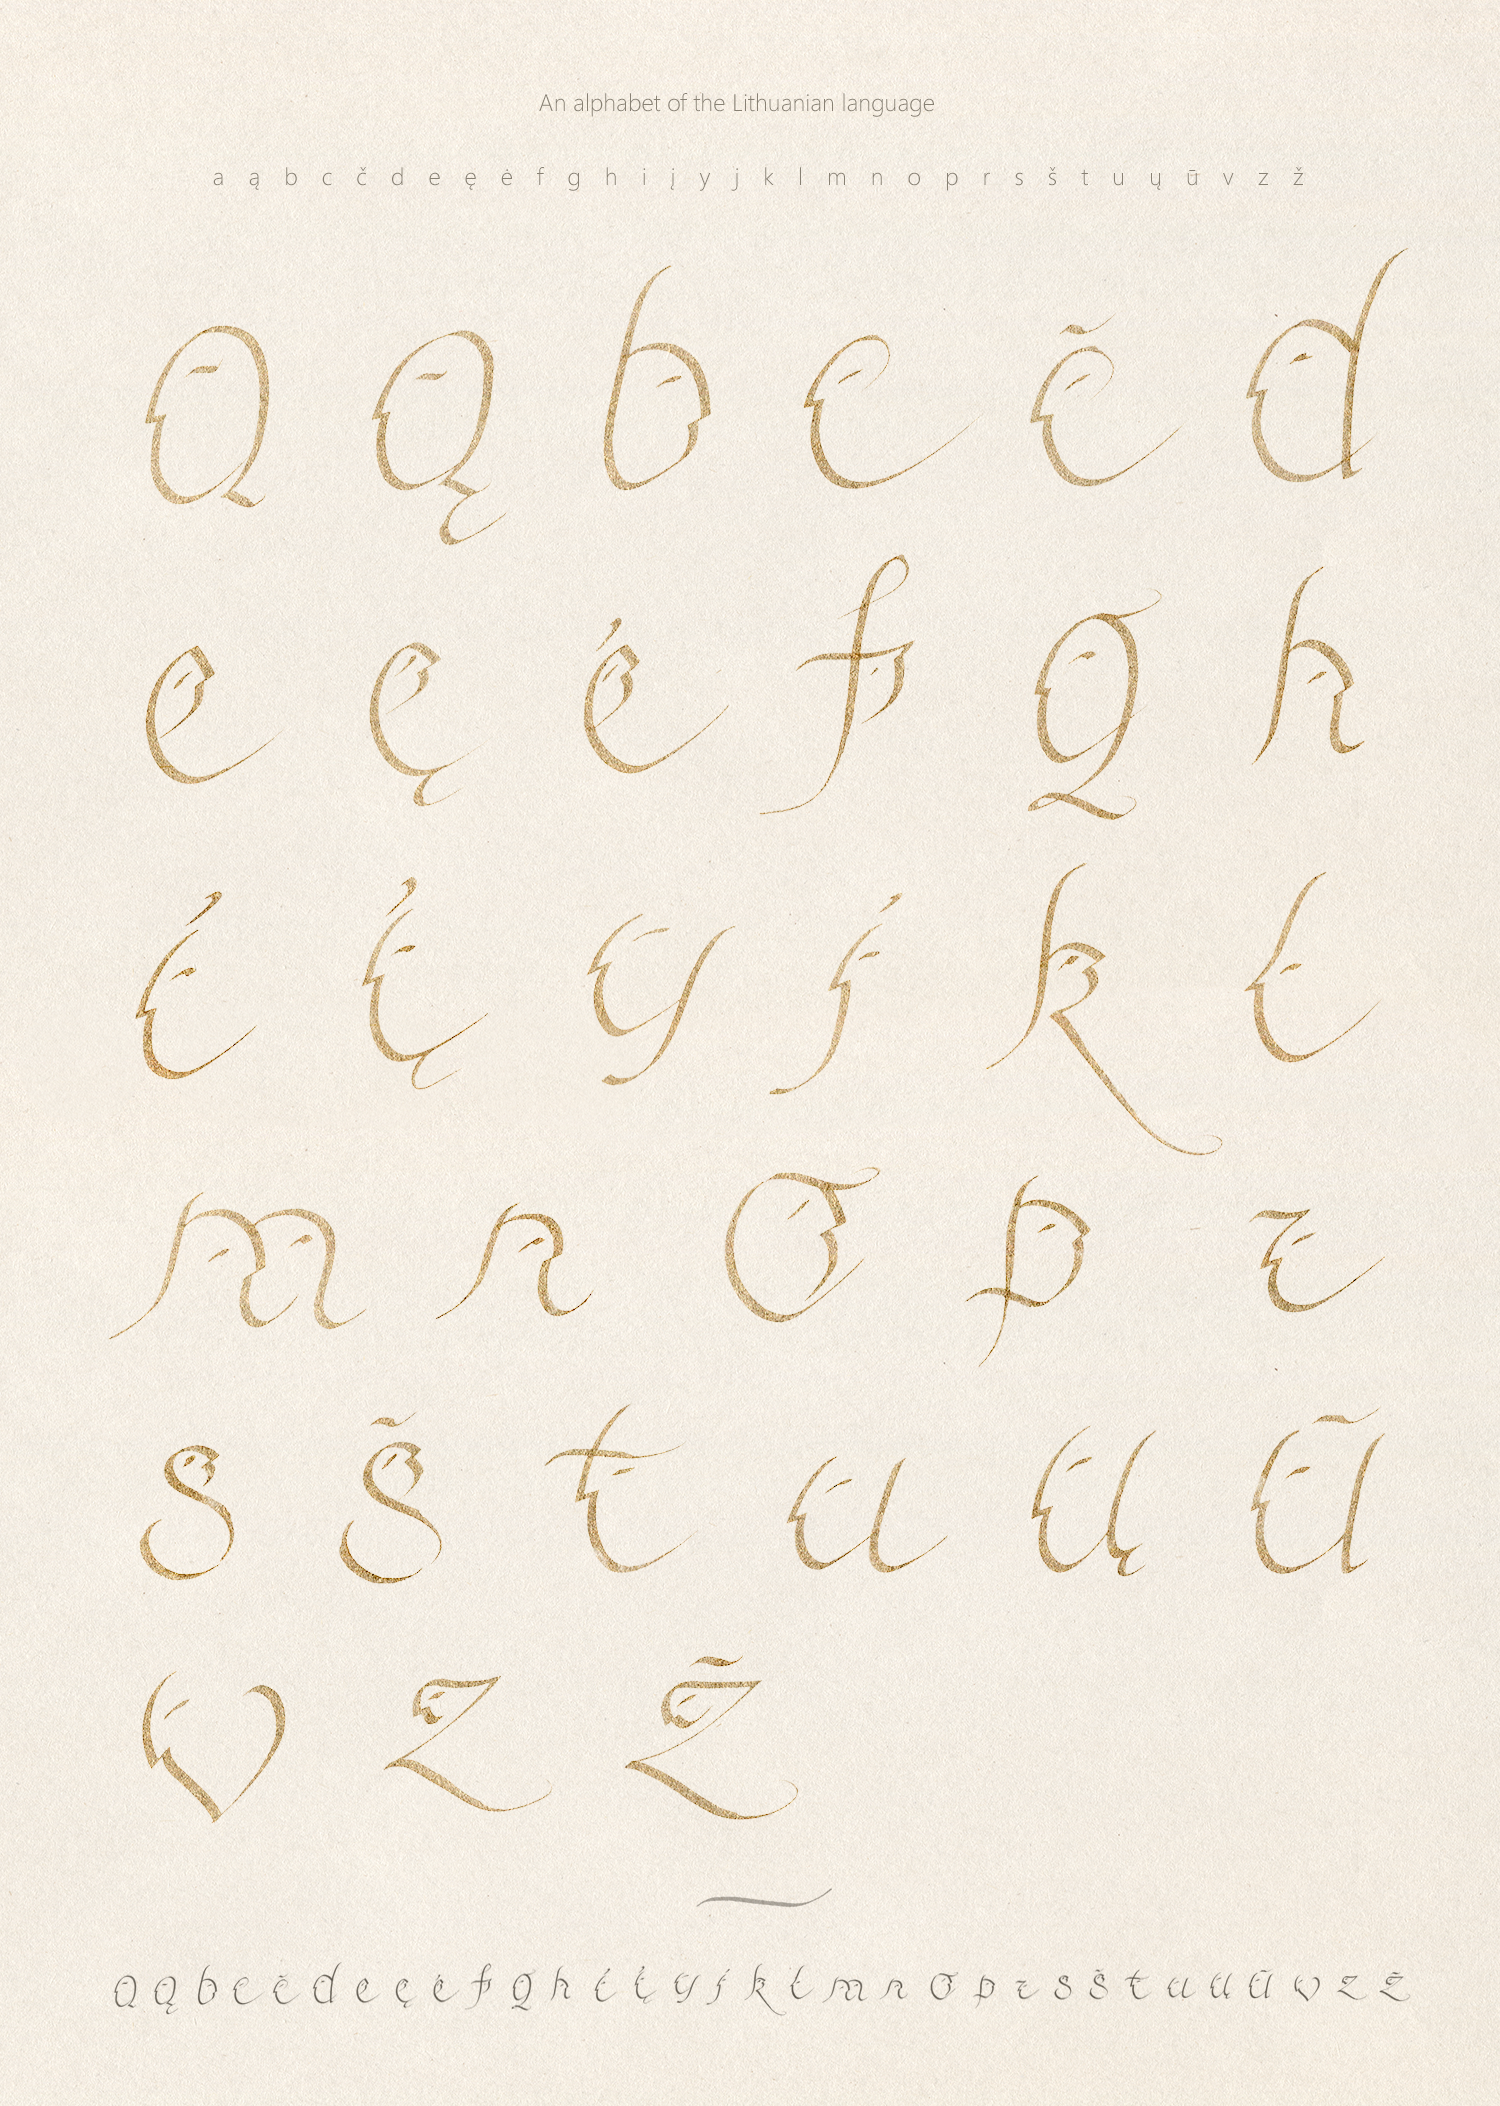 An alphabet of the Lithuanian language
a ą b c č d e ę ė f g h i į y j k l m n o p r s š t u ų ū v z ž
a ą b c č d
e ę ė f g h
i į y j k l
m n o p r
s š t u ų ū
v z ž
a ą b c č d e ę ė f g h i į y j k l m n o p r s š t u ų ū v z ž